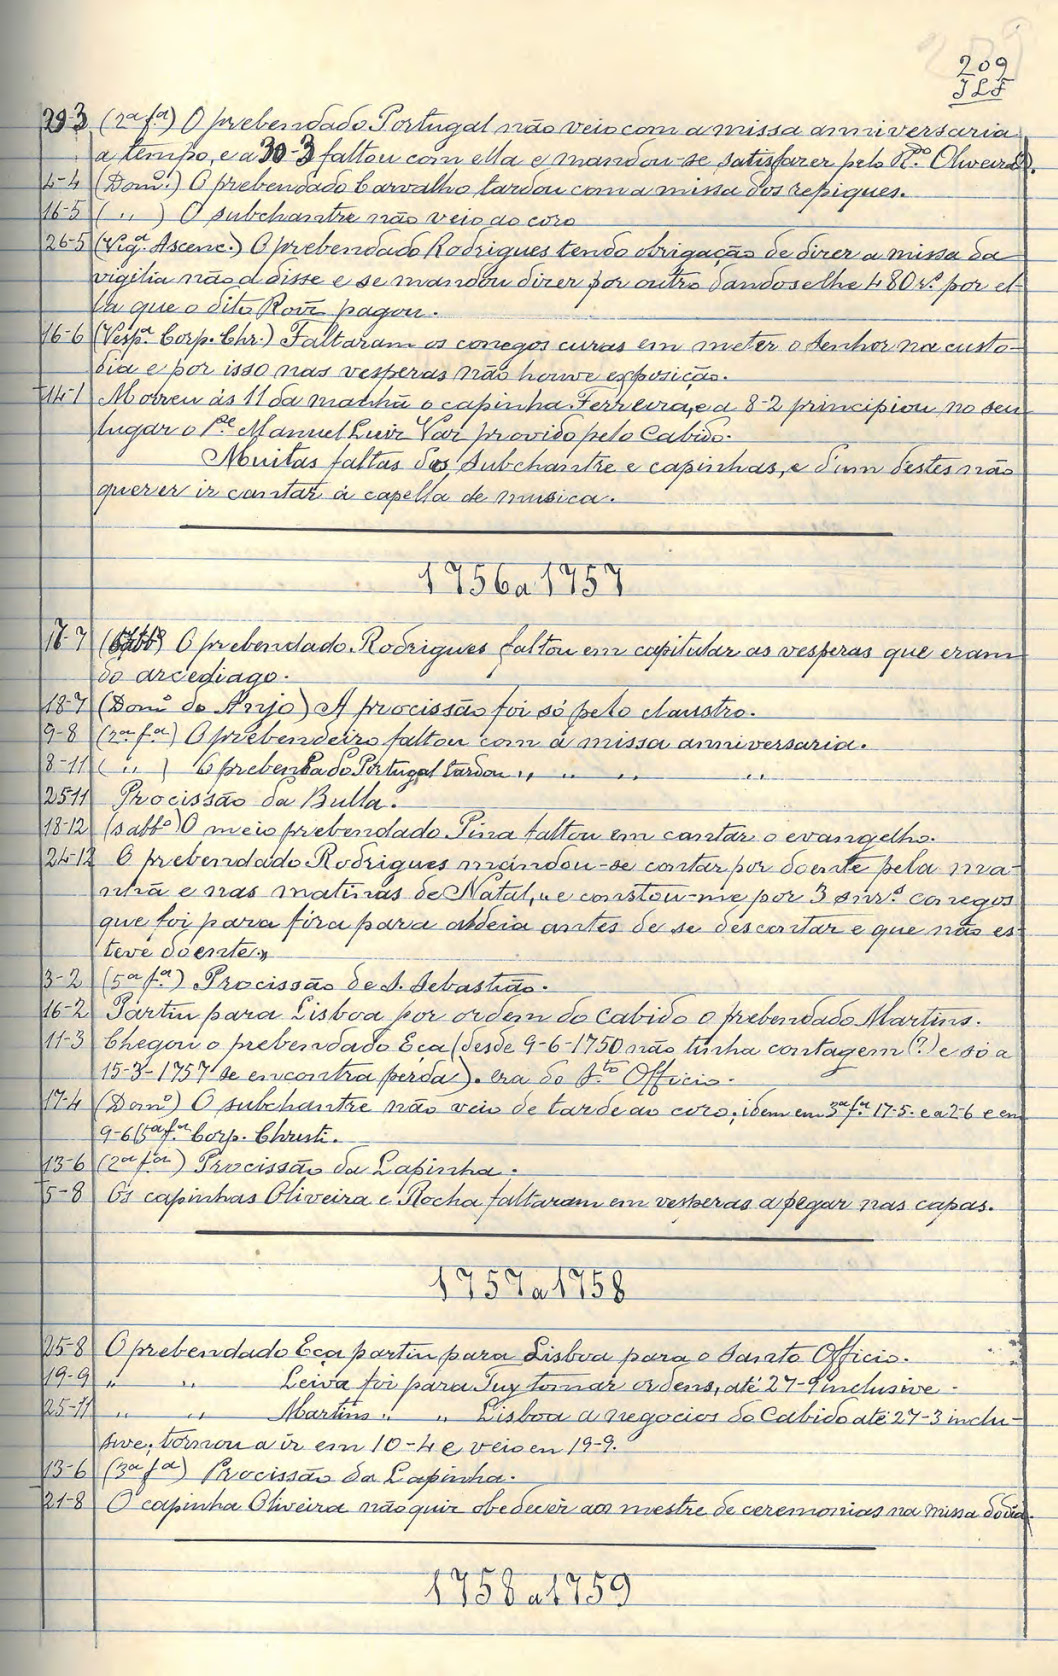 209
JLF
29-3 (2ª fª) O prebendado Portugal não veio com a missa anniversaria
a tempo, e a 30-3 faltou com ella e mandou-se satisfazer pelo R.do Oliveira.
4-4 (Domº.) O prebendado Carvalho tardou com a missa dos repiques.
16-5 ( ,, ) O subchantre não veio ao coro
26-5 (Vig.ª Ascenc.) O prebendado Rodrigues tendo obrigação de dizer a missa da
vigilia não a disse e se mandou dizer por outro dandoselhe 480 r.s por el-
la que o dito Rov̄z pagou.
16-6 (Vesp.ª Corp. Chr.) Faltaram os conegos curas em meter o Senhor na custo-
dia e por isso nas vesperas não houve exposição.
14-1 Morreu ás 11 da manhã o capinha Ferreira, e a 8-2 principiou no seu
lugar o P.e Manuel Luiz Vaz provido pelo Cabido.
Muitas faltas dos subchantre e capinhas, e d'um destes não
querer ir cantar á capella de musica.
1756 a 1757
17-7 (sabbº) O prebendado Rodrigues faltou em capitular as vesperas que eram
do arcediago.
18-7 (Domº do Anjo) A procissão foi só pelo claustro.
9-8 (2ª fª) O prebendeiro faltou com a missa anniversaria.
8-11 ( ,, ) O prebendado Portugal tardou ,, ,, ,, ,,
25 11 Procissão da Bulla.
18-12 (sabbº) O meio prebendado Pina faltou em cantar o evangelho.
24-12 O prebendado Rodrigues mandou-se contar por doente pela ma-
nhã e nas matinas de Natal, „e constou-me por 3 snr.s conegos
que foi para fóra para aldeia antes de se descontar e que não es-
teve doente.»
3-2 (5ª fª) Procissão de S. Sebastião.
16-2 Partiu para Lisboa por ordem do Cabido o prebendado Martins.
11-3 Chegou o prebendado Eça (desde 9-6-1750 não tinha contagem (?) e só a
15-3-1757 se encontra perda). era do S.to Officio.
17-4 (Domº) O subchantre não veio de tarde ao coro; idem em 3ª fª 17-5. e a 2-6 e em
9-6 (5ª fª Corp. Christi.
13-6 (2ª fª) Procissão da Lapinha.
5-8 Os capinhas Oliveira e Rocha faltaram em vesperas a pegar nas capas.
1757 a 1758
25-8 O prebendado Eça partiu para Lisboa para o Santo Officio.
19-9 ,, ,, Leiva foi para Tuy tomar ordens, até 27-9 inclusive.
25-11 ,, ,, Martins ,, ,, Lisboa a negocios do Cabido até 27-3 inclu-
sive; tornou a ir em 10-4 e veio em 19-9.
13-6 (3ª fª) Procissão da Lapinha.
21-8 O capinha Oliveira não quiz obedecer aos mestre de ceremonias na missa do dia.
1758 a 1759